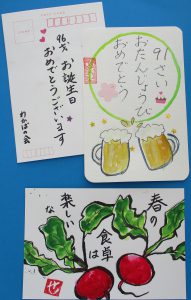 96才
お誕生日
おめでとうございます
わかばの会
91さい
おたんじょうび
おめでとう
春の
食卓は
楽しいな
せ